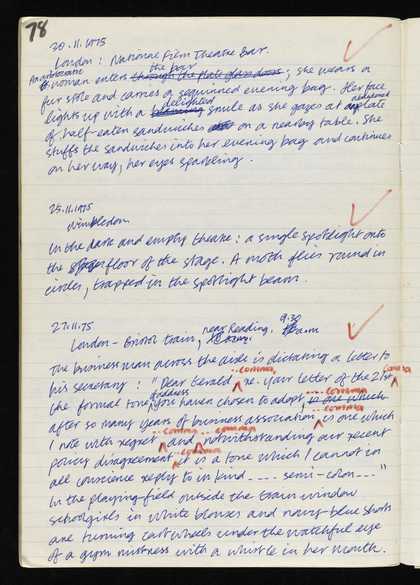 78
20.11.1975
London: National Film Theatre Bar.
An aristocratic
woman enters the bar through the plate glass doors; she wears a
fur stole and carries a sequinned evening bag. Her face
lights up with a delighted smile as she gazes at a abandoned plate
of half-eaten sandwiches on a nearby table. She
stuffs the sandwiches into her evening bag and continues
on her way, her eyes sparkling.
25.11.1975
Wimbledon
In the dark and empty theatre: a single spotlight onto
the floor of the stage. A moth flies round in
circles, trapped in the spotlight beam.
27.11.75
London-Bristol train, near Reading. 9.30 am
The businessman across the aisle is dictating a letter to
his secretary: "Dear Gerald ..comma, re. your letter of the 21st comma,
the formal tone of address you have chosen to adopt, ..comma, is one which
after so many years of business association ..comma, is one which
I note with regret ..comma, and ..comma, notwithstanding our recent
policy disagreement ..comma, it is a tone which I cannot in
all conscience reply to in kind ---- semi-colon --- "
In the playing-field outside the train window
schoolgirls in white blouses and navy-blue shorts
are turning cartwheels under the watchful eye
of a gym mistress with a whistle in her mouth.